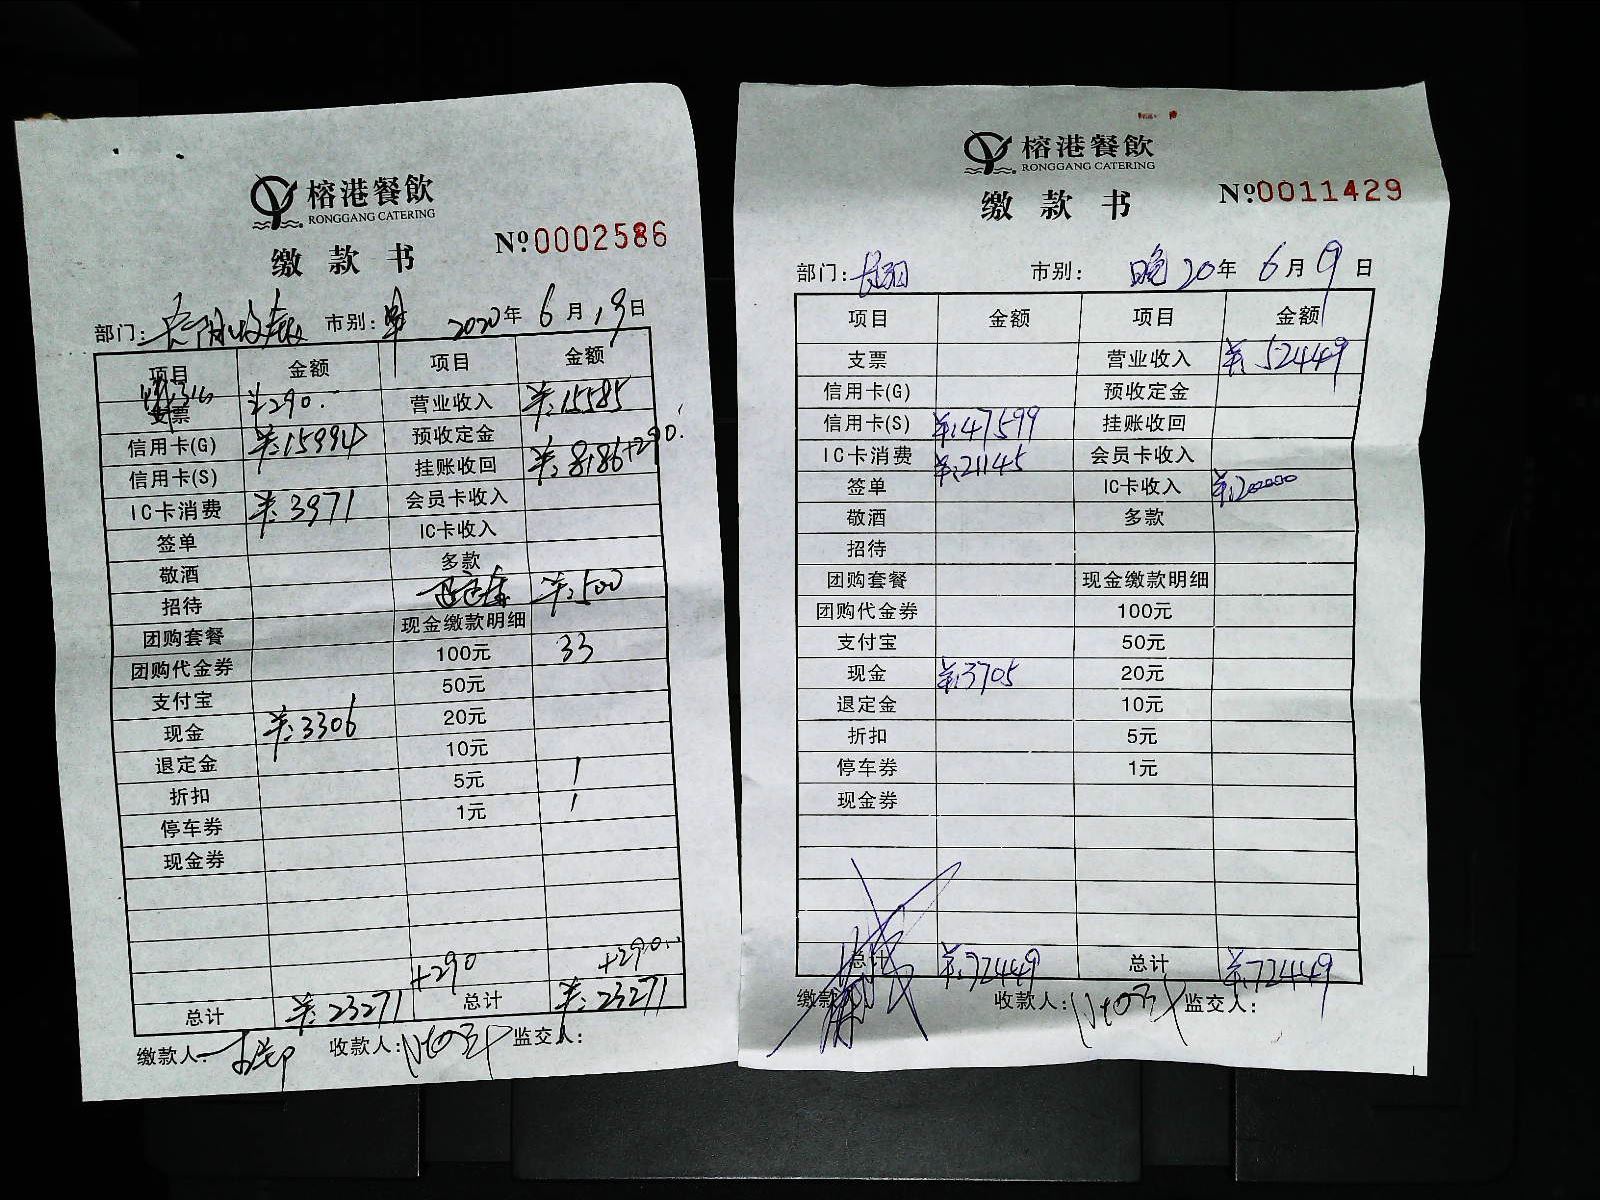 榕港餐飲
RONGGANG CATERING
缴款书
Nº0002586
部门: 市别: 2020年6月19日
项目 金额 项目 金额
支票 ¥290. 营业收入 ¥:15585
信用卡(G) ¥:15994 预收定金
信用卡(S) 挂账收回 ¥:8186+290.
IC卡消费 ¥:3971 会员卡收入
签单 IC卡收入
敬酒 多款
招待 ¥:500
团购套餐 现金缴款明细
团购代金券 100元 33
支付宝 50元
现金 ¥:3306 20元
退定金 10元
折扣 5元 1
停车券 1元 1
现金券
+290 +290
总计 ¥:23271 总计 ¥:23271
缴款人: 收款人: 监交人:
榕港餐飲
RONGGANG CATERING
缴款书
Nº0011429
部门: 市别: 晚 20年6月9日
项目 金额 项目 金额
支票 营业收入 ¥:52449
信用卡(G) 预收定金
信用卡(S) ¥:47599 挂账收回
IC卡消费 ¥:21145 会员卡收入
签单 IC卡收入 ¥:20000
敬酒 多款
招待
团购套餐 现金缴款明细
团购代金券 100元
支付宝 50元
现金 ¥:3705 20元
退定金 10元
折扣 5元
停车券 1元
现金券
总计 ¥:72449 总计 ¥:72449
缴款 收款人: 监交人: